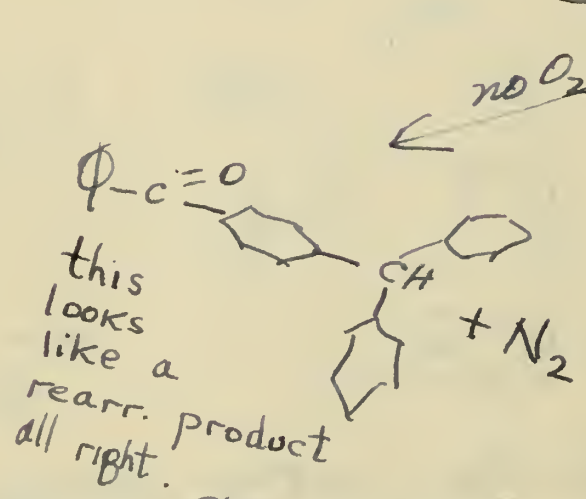 no O₂
Φ-C=O
CH
+ N₂
this
looks
like a
rearr. product
all right.